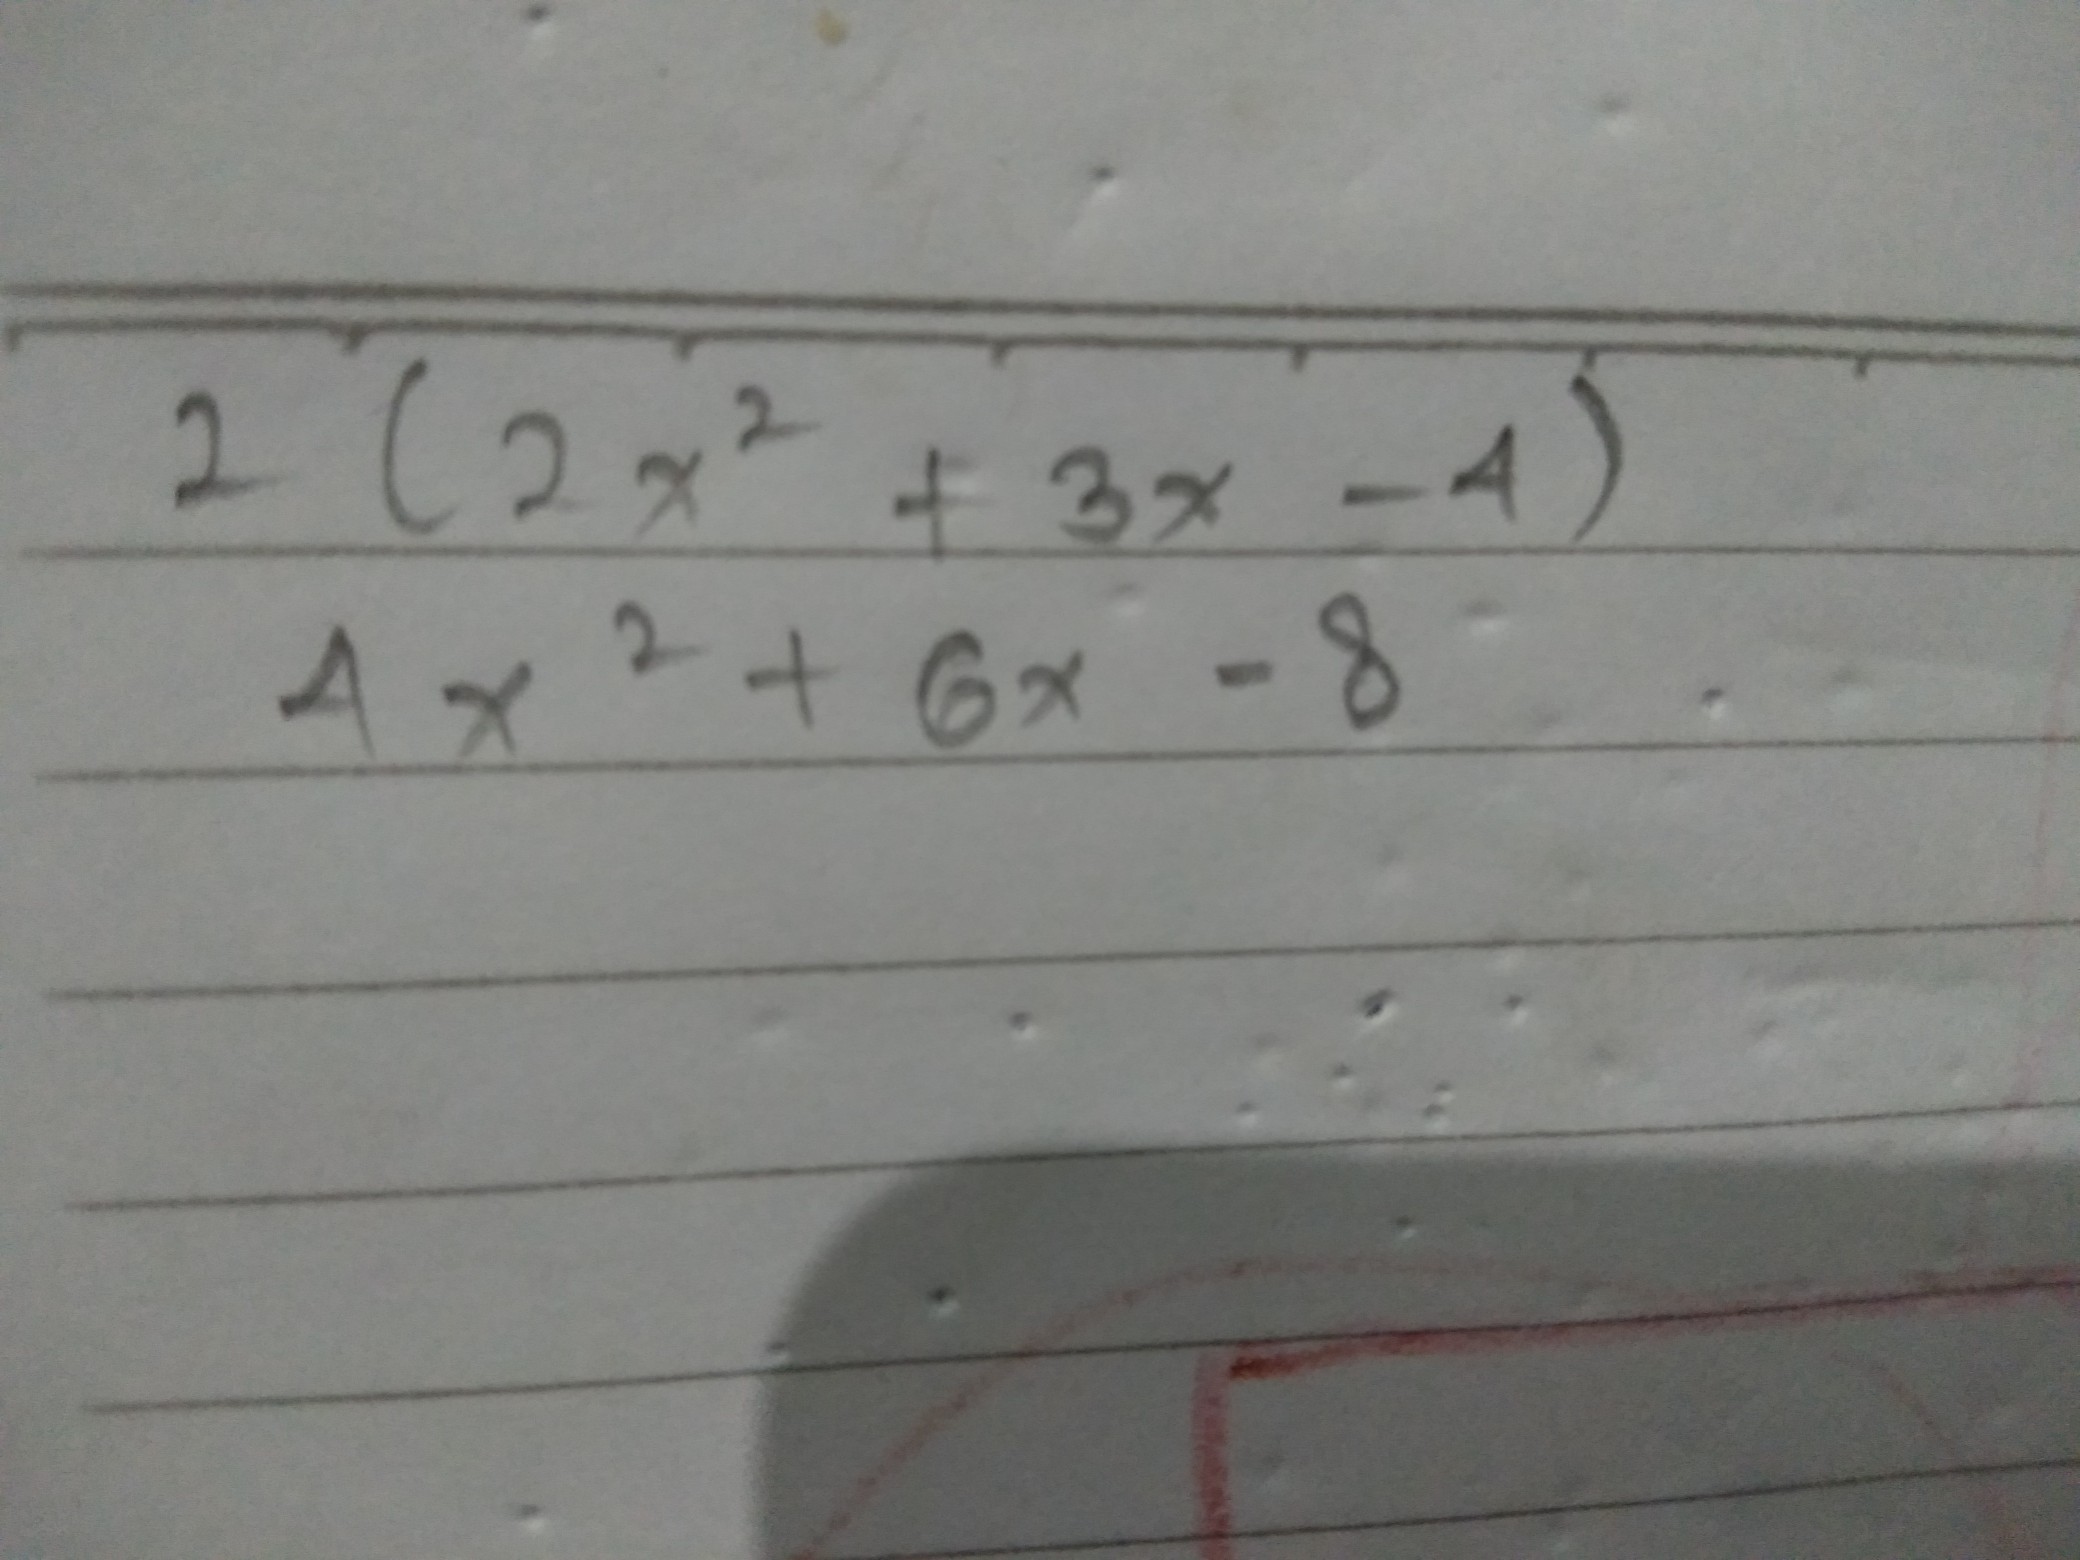 2 (2x² + 3x - 4)
4x² + 6x - 8